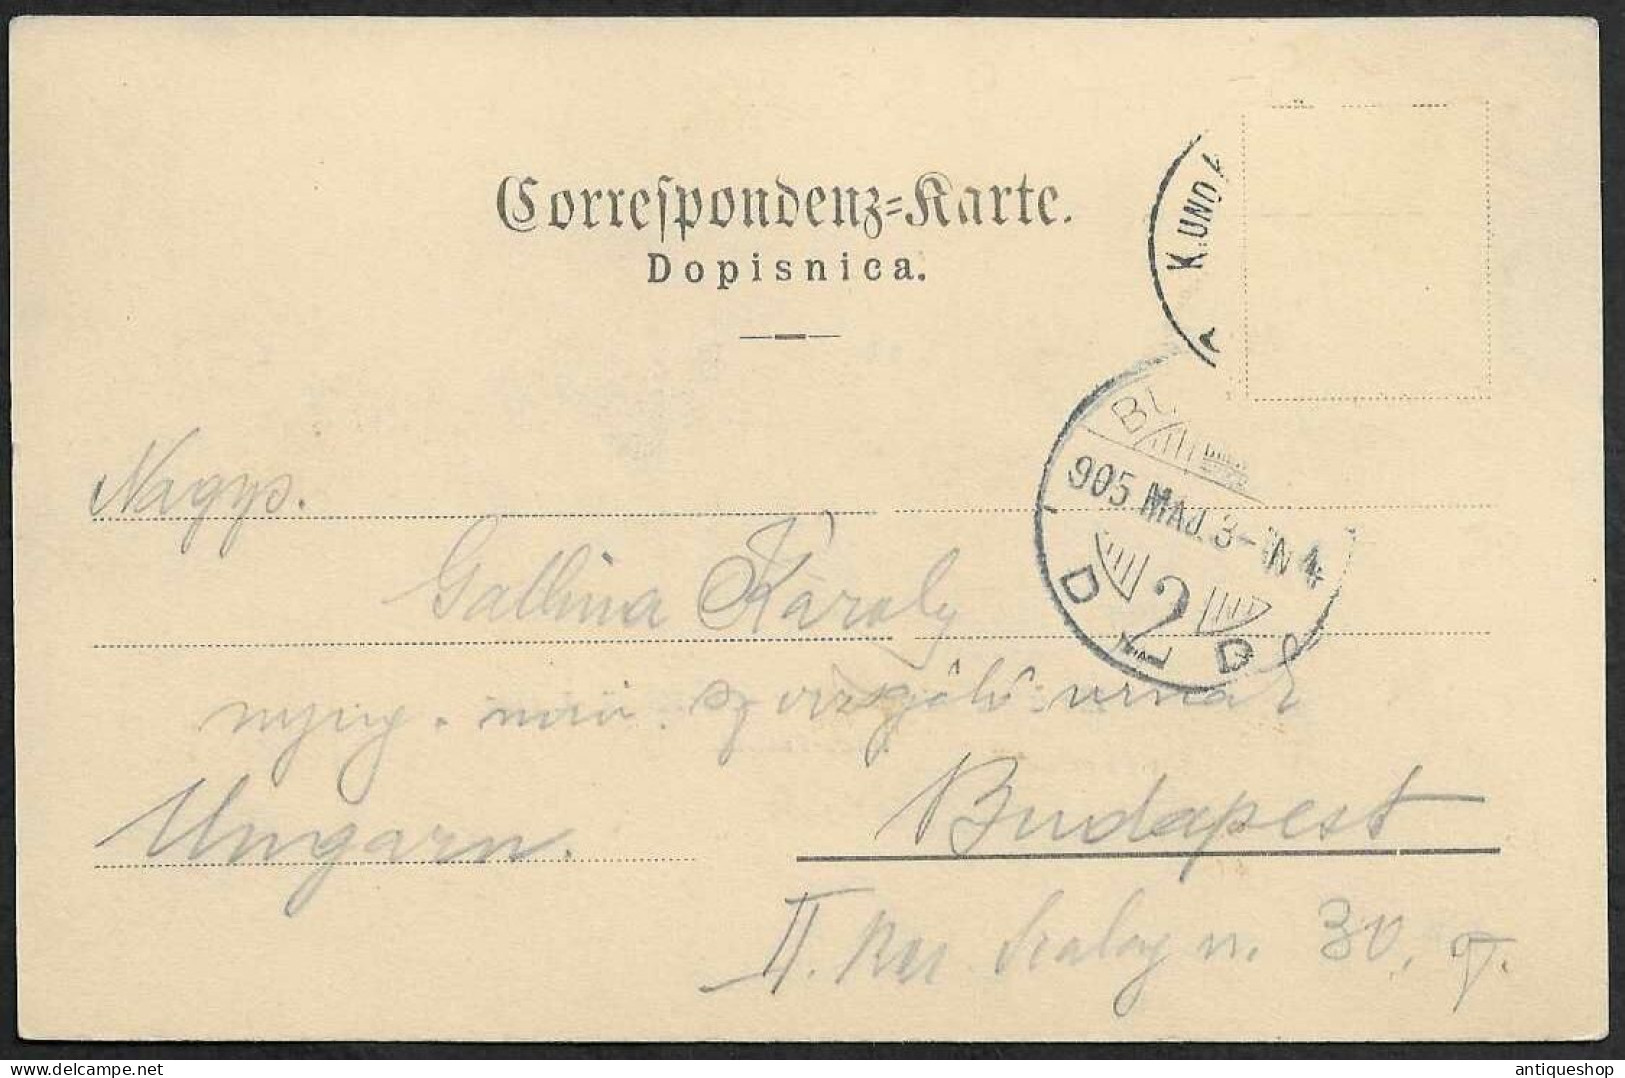 Correspondenz=Karte.
Dopisnica.
K. UND
BU
905 MAJ. 3 - N 4
D 2 D
Nagys.
Gallina Károly
nyug. min. sz vizsgáló urnak
Ungarn.
Budapest
II. ker Szalag u. 30.
antiqueshop